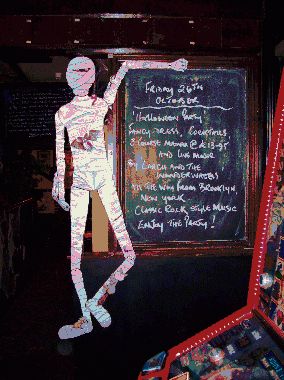 FRIDAY 26TH
OCTOBER
HALLOWEEN PARTY
FANCY DRESS, COCKTAILS
3 COURSE MENU @
AND LIVE MUSIC
BY LARCH AND THE
WONDERWEEDS
ALL THE WAY FROM BROOKLYN
NEW YORK
CLASSIC ROCK STYLE MUSIC
ENJOY THE PARTY!